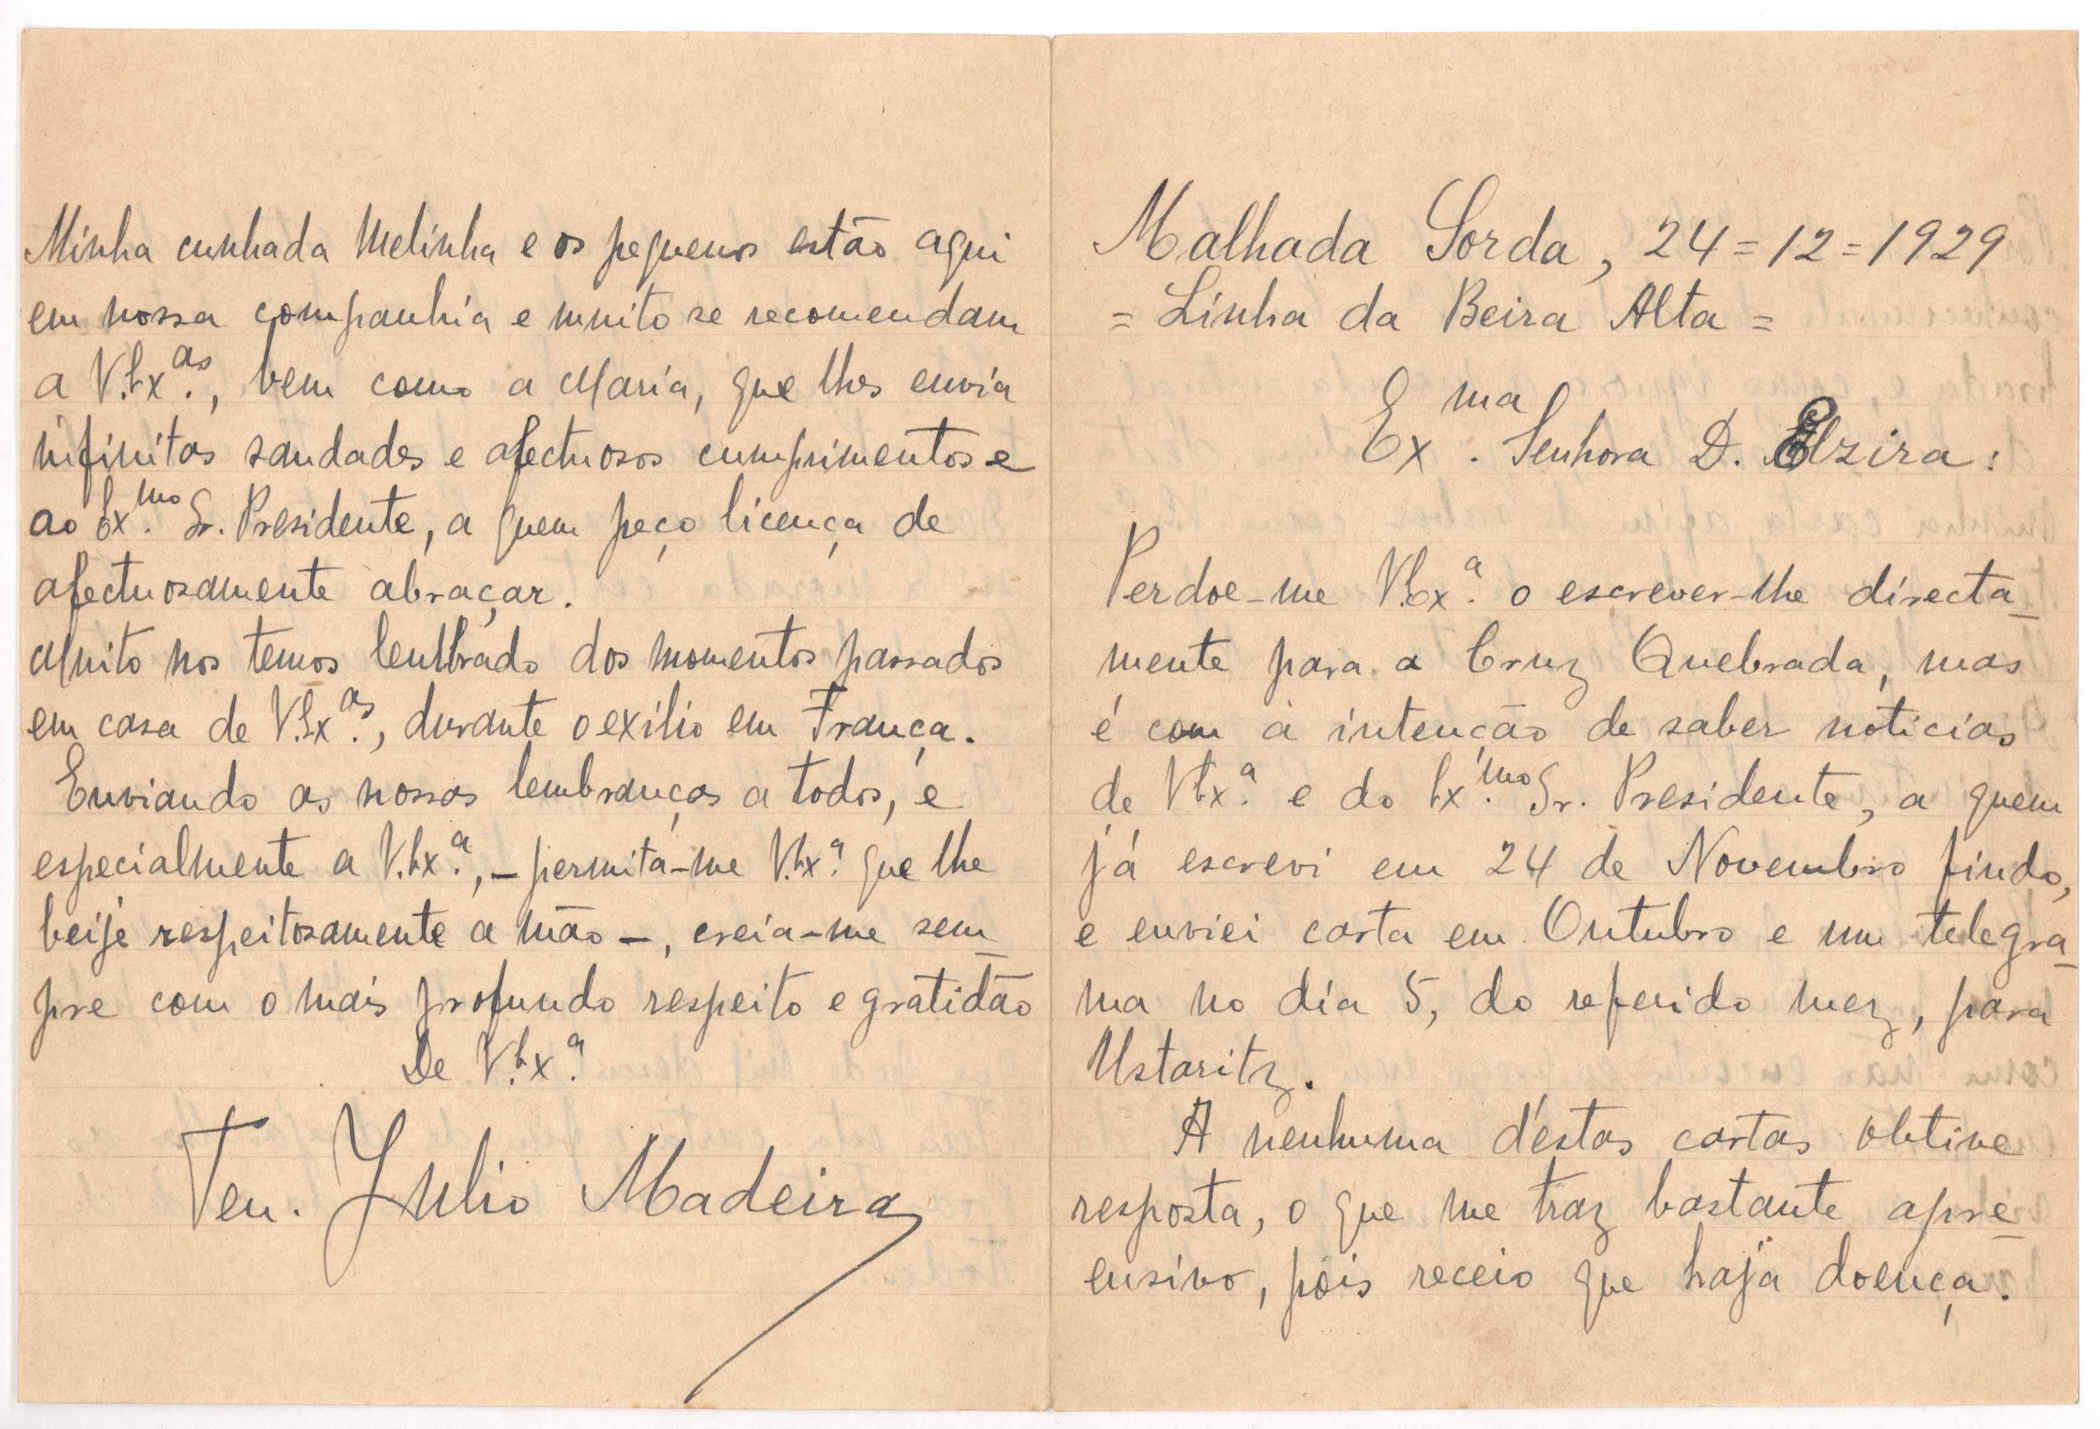 Malhada Sorda, 24=12=1929
= Linha da Beira Alta =
Ex.ma Senhora D. Elzira:
Perdoe-me V.Ex.a o escrever-lhe directa-
mente para a Cruz Quebrada, mas
é com a intenção de saber noticias
de V.Ex.a e do Ex.mo Sr. Presidente, a quem
já escrevi em 24 de Novembro findo,
e enviei carta em Outubro e um telegra-
ma no dia 5, do referido mez, para
Ustaritz.
A nenhuma d'estas cartas obtive
resposta, o que me traz bastante apre-
ensivo, pois receio que haja doença.
Minha cunhada Melinha e os pequenos estão aqui
em nossa companhia e muito se recomendam
a V.Ex.as, bem como a Maria, que lhes envia
infinitas saudades e afectuosos cumprimentos e
ao Ex.mo Sr. Presidente, a quem peço licença de
afectuosamente abraçar.
Muito nos temos lembrado dos momentos passados
em casa de V.Ex.as, durante o exilio em França.
Enviando as nossas lembranças a todos, e
especialmente a V.Ex.a, - permita-me V.Ex.a que lhe
beije respeitosamente a mão -, creia-me sem-
pre com o mais profundo respeito e gratidão
De V.Ex.a
Ten. Julio Madeira